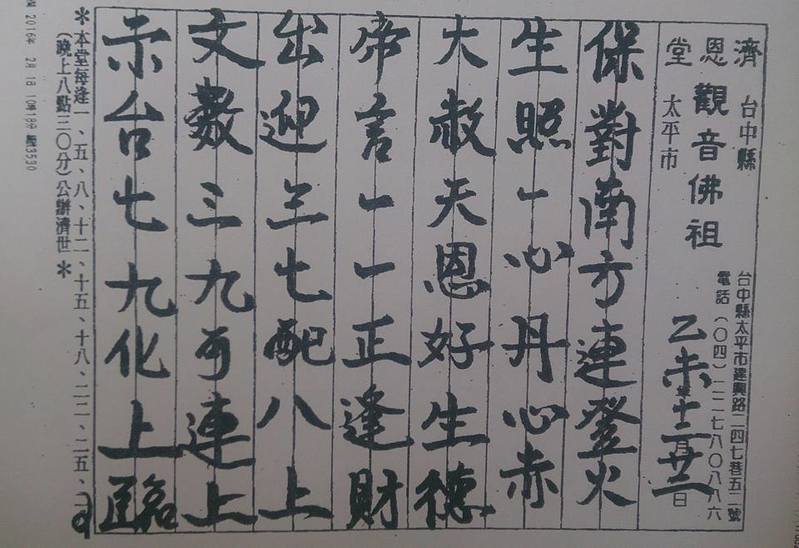 台中縣太平市建興路二四七巷五二號
電話(〇四)二二七八〇八八六
濟恩堂
台中縣太平市
觀音佛祖
乙未年十二月廿二日
保對南方連登火
生照一心丹心赤
大赦天恩好生德
帝言一一正逢財
出迎三七配八上
文數三九可連上
示台七九化上臨
*本堂每逢一、五、八、十二、十五、十八、二二、二五、
(晚上八點三〇分)公辦濟世*
2016年 2月 1日 10時18分